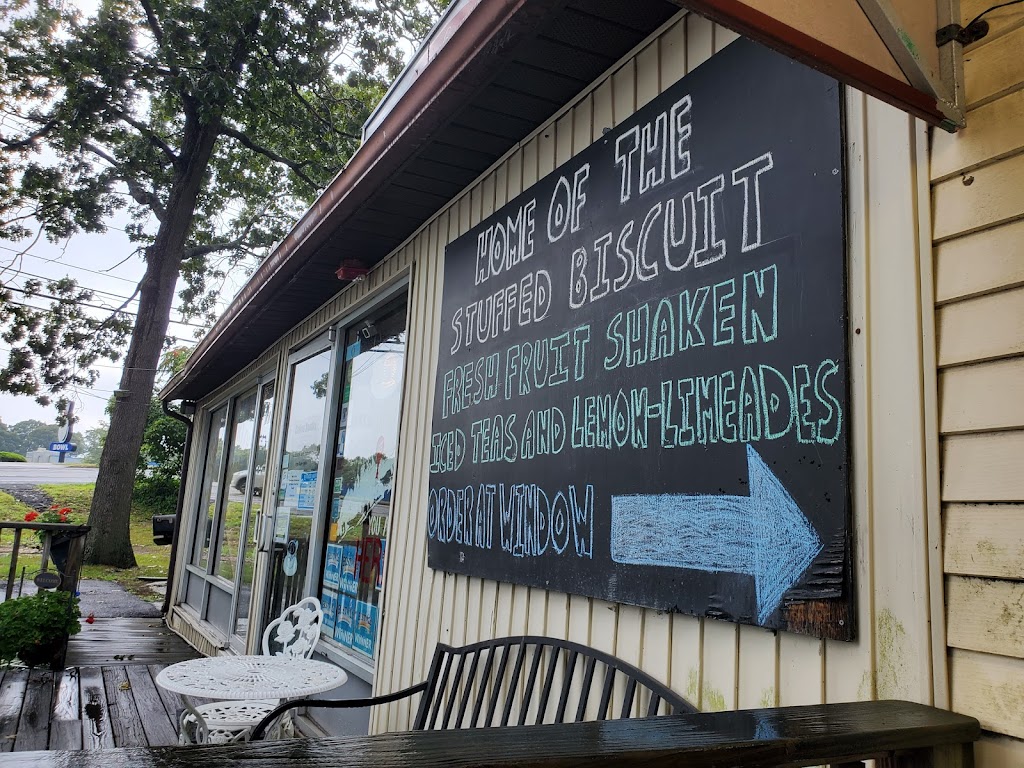 HOME OF THE
STUFFED BISCUIT
FRESH FRUIT SHAKEN
ICED TEAS AND LEMON-LIMEADES
ORDER AT WINDOW
BOWL
WINNER